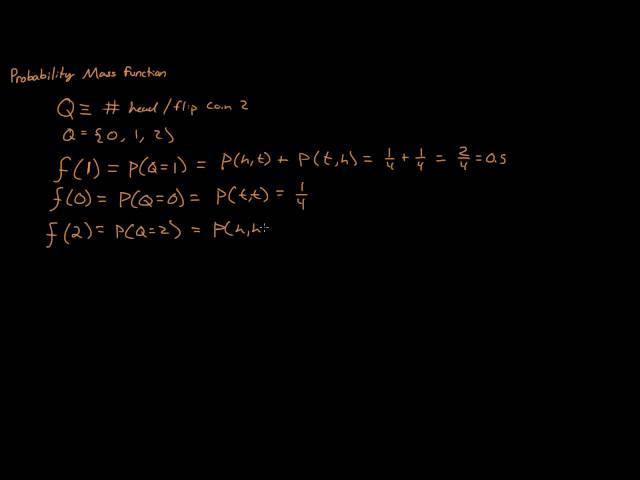 Probability Mass Function
Q ≡ # head/flip coin 2
Q = {0, 1, 2}
f(1) = P(Q=1) = P(h,t) + P(t,h) = 1/4 + 1/4 = 2/4 = 0.5
f(0) = P(Q=0) = P(t,t) = 1/4
f(2) = P(Q=2) = P(h,h